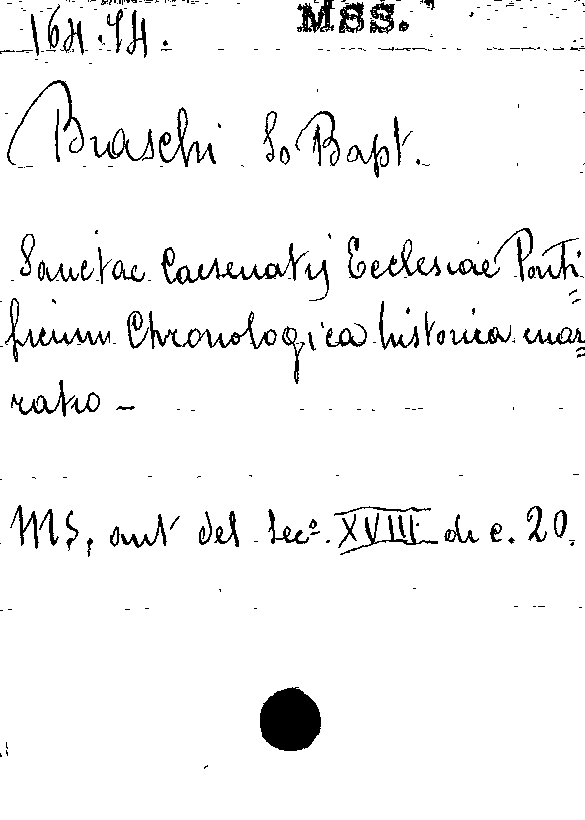 164.74.
MSS.
Braschi Io Bapt.
Sanctae Caesenatis Ecclesiae Ponti=
ficium Chronologica historica enar=
ratio -
MS, aut del Sec.º XVIII di c. 20.